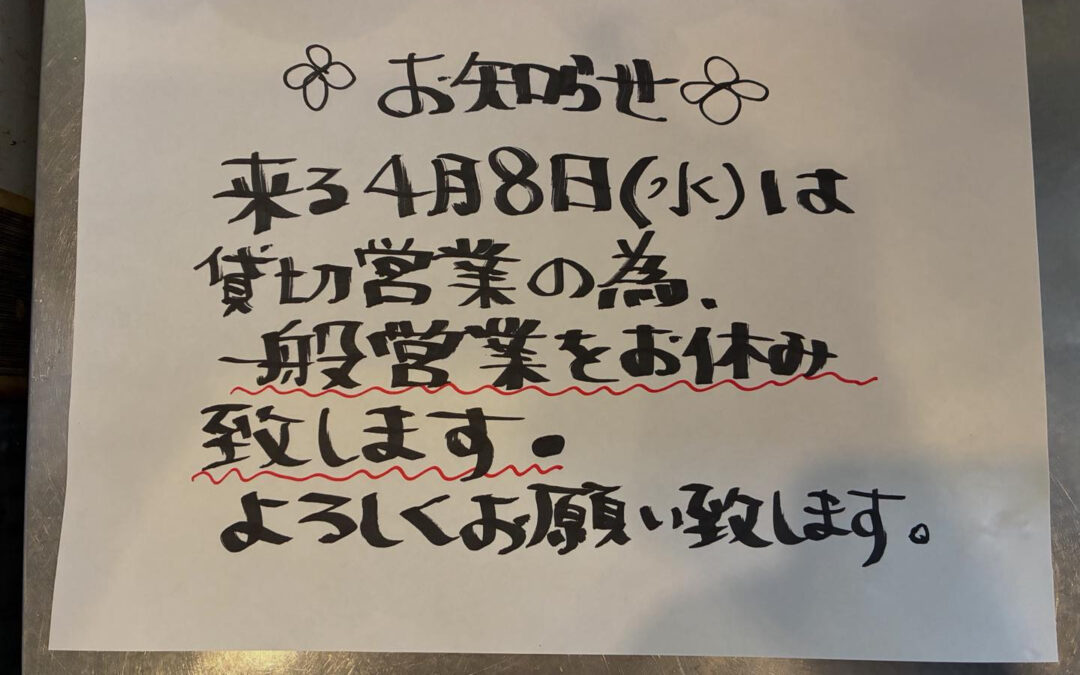 お知らせ
来る4月8日(水)は
貸切営業の為、
一般営業をお休み
致します。
よろしくお願い致します。